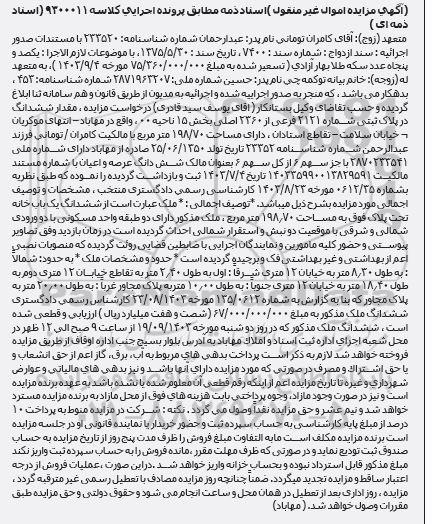 (آگهي مزايده اموال غير منقول )اسناد ذمه مطابق پرونده اجرايي كلاسه ۹۳۰۰۰۱۱ (اسناد ذمه ای )
متعهد (زوج): آقای كامران تومانی نام پدر: عبدارحمان شماره شناسنامه: ۲۳۳۵۲۰ با مستندات صدور
اجرائيه : سند ازدواج : شماره سند : ۷۴۰۰ ، تاريخ سند : ۱۳۷۵/۵/۳۰ ، با موضوعات لازم الاجرا : يكصد و
پنجاه عدد سكه طلا بهار آزادی ( تسعير شده به مبلغ ۷۵/۳۶۰/۰۰۰/۰۰۰ مورخه ۱۴۰۳/۹/۴ ) ، به متعهد
له (زوجه): خانم بيانه توكمه چی نام پدر: حسين شماره ملی: ۲۸۷۱۹۶۳۳۰۷ شماره شناسنامه: ۴۵۳ ،
بدهكار می باشد ، كه منجر به صدور اجراييه شده و اجرائيه به مديون از طريق قانون وهم سامانه ثنا ابلاغ
گرديده و حسب تقاضای وكيل بستانكار ( آقای يوسف سيد قادری) درخواست مزايده ، مقدار ششدانگ
در پلاک ثبتی شـــماره ۲۱۲۱ فرعی از ۲۳۶۰ اصلی بخش ۱۵ ناحيه ۰۰، واقع در مهاباد – انتهای موكريان
– خيابان سلامت – تقاطع استادان ، دارای مساحت ۱۹۸/۷۰ متر مربع با مالكيت كامران / تومانی فرزند
عبدالرحمن شـــماره شناســـنامه ۲۳۳۵۲ تاريخ تولد ۲۵/۰۶/۱۳۵۰ صادره از مهاباد دارای شـــماره ملی
۲۸۷۰۲۳۲۵۴۱ با جز ســـهم ۶ از كل ســـهم ۶ بعنوان مالک شـــش دانگ عرصه و اعيان با شماره مستند
مالكيت ۱۴۰۳۳۵۹۹۰۰۱۳۸۲۹۵۹۱ تاريخ ۱۴۰۳/۷/۴ ثبت و بازداشت گرديده را نمـوده كه طبق نظريه
بشماره ۰۶۱۲/۳۵ مورخه ۱۴۰۳/۸/۲۳ كارشناسی رسمی دادگستری منتخب ، مشخصات و توصيف
اجمالی مورد مزايده بشرح ذيل ميباشد. *توصيف اجمالی : * ملک عبارت است از ششدانگ يک باب خانه
تحت پلاک فوق به مساحت ۱۹۸٫۷۰ متر مربع ، ملک مذكور دارای دو طبقه واحد مسكونی با دو ورودی
شمالی و شرقی با موقعيت دو نبش و استقرار شمالی احداث گرديده است در زمان بازديد وفق تصاوير
پيوستی و حضور كليه مامورين و نمايندگان اجرايی با ضابطين قضايی رؤيت گرديده كه منصوبات نصبی
اعم از بهداشتی و غير بهداشتی فک و برچيده گرديده است *حدود و مشخصات ملک * به حدود: شمالاً
: به طول ۸٫۳۰ متر به خيابان ۱۲ متری شرقا : اول به طول ۲٫۴۰ متر به تقاطع خيابـان ۱۲ متری دوم به
طول ۱۸٫۴۰ متر به خيابان ۱۲ متری جنوباً : به طول ۱۰٫۰۰ متر به پلاک مجاور غرباً : به طول ۲۰٫۰۰ متر به
پلاک مجاور كه بنا به گزارش به شماره ۱۳۵/۰۶۱۲ مورخه ۲۳/۰۸/۱۴۰۳ كارشناس رسمی دادگستری
ششدانگ ملک مذكور به مبلغ ۶۷/۰۰۰/۰۰۰/۰۰۰ (شصت و هفت ميليارد ريال ) ارزيابی و قطعی شده
است ، ششدانگ ملک مذكور كه در روز دو شنبه مورخه ۱۹/۰۹/۱۴۰۳ از ساعت ۹ صبح الی ۱۲ ظهر در
محل شعبه اجرای اداره ثبت اسناد و املاک مهاباد به آدرس بلوار بسيج جنب اداره اوقاف از طريق مزايده
فروخته خواهد شد لازم به ذكر است پرداخت بدهی های مربوط به آب، برق، گاز اعم از حق انشعاب و
يا حق اشتراک و مصرف در صورتی كه مورد مزايده دارای آنها باشد و نيز بدهی های مالياتی و عوارض
شهرداری و غيره تا تاريخ مزايده اعم از اينكه رقم قطعی آن معلوم شده يا نشده باشد به عهده برنده مزايده
است و نيز در صورت وجود مازاد، وجوه پرداختی بابت هزينه های فوق از محل مازاد به برنده مزايده مسترد
خواهد شد و نيم عشر و حق مزايده نقداً وصول می گردد . نكته : شركت در مزايده منوط به پرداخت ۱۰
درصد از مبلغ پايه كارشناسی به حساب سپرده ثبت و حضور خريدار يا نماينده قانونی او در جلسه مزايده
است برنده مزايده مكلف است مابه التفاوت مبلغ فروش را ظرف مدت پنج روز از تاريخ مزايده به حساب
صندوق ثبت توديع نمايد و در صورتی كه ظرف مهلت مقرر ،مانده فروش را به حساب سپرده ثبت واريز نكند
مبلغ مذكور قابل استرداد نبوده و بحساب خزانه واريز خواهد شد .در اين صورت ،عمليات فروش از درجه
اعتبار ساقط و مزايده تجديد ميگردد. ضمناً چنانچه روز مزايده مصادف با تعطيل رسمی غير مترقبه گردد ،
مزايده ، روز اداری بعد از تعطيل در همان محل و ساعت انجام می شود و حقوق دولتی و حق مزايده طبق
مقررات وصول خواهد شد. ( مهاباد)